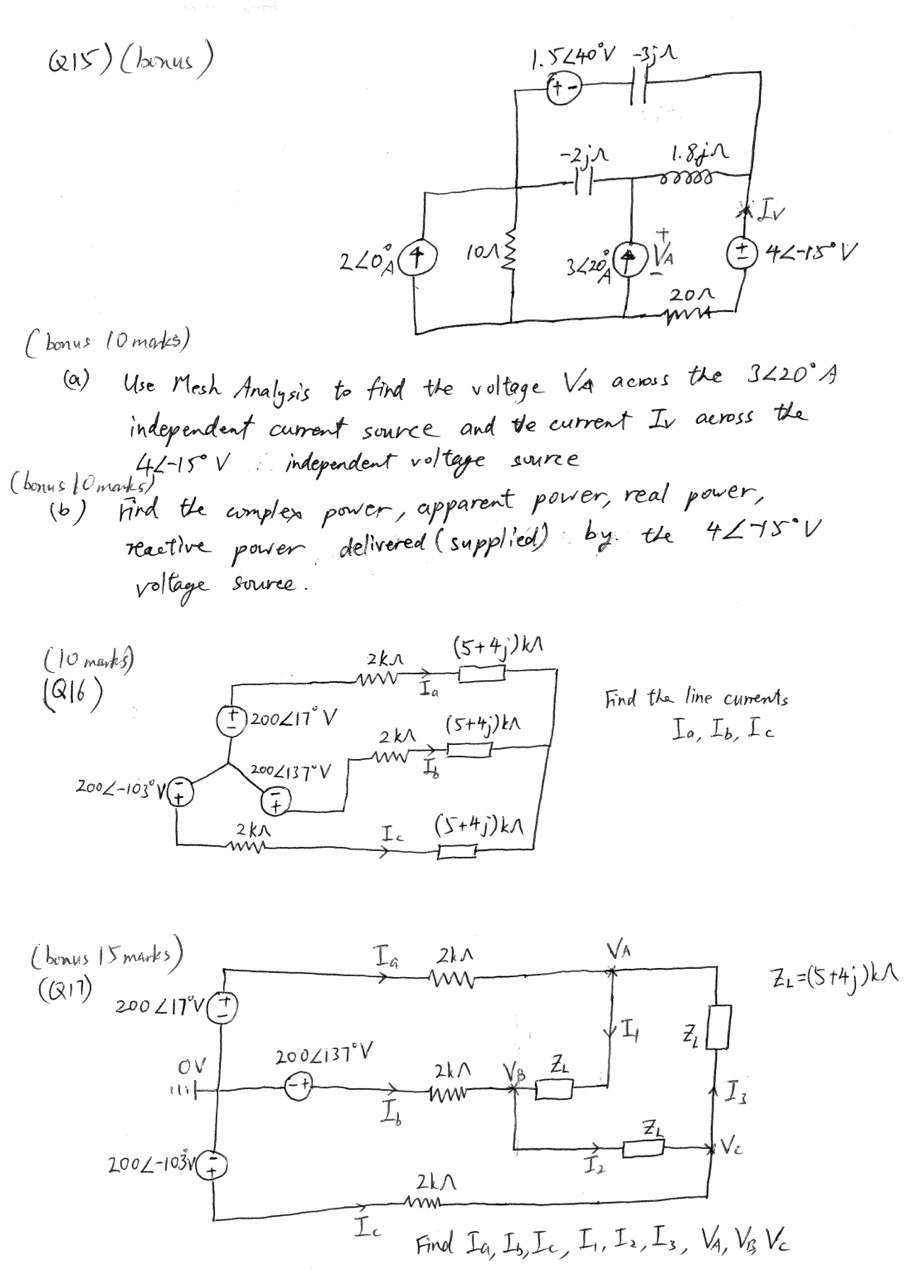 Q15) (bonus)
1.5∠40°V -3jΩ
+ -
-2jΩ 1.8jΩ
Iv
2∠0°A
10Ω
3∠20°A
+
VA
-
+
-
4∠-15°V
20Ω
(bonus 10 marks)
(a) Use Mesh Analysis to find the voltage VA across the 3∠20°A
independent current source and the current Iv across the
4∠-15°V independent voltage source
(bonus 10 marks)
(b) Find the complex power, apparent power, real power,
reactive power delivered (supplied) by the 4∠-15°V
voltage source.
(10 marks)
(Q16)
2kΩ (5+4j)kΩ
Ia
+
-
200∠17°V
2kΩ (5+4j)kΩ
Ib
200∠137°V
-
+
200∠-103°V
-
+
2kΩ Ic (5+4j)kΩ
Find the line currents
Ia, Ib, Ic
(bonus 15 marks)
(Q17)
Ia 2kΩ VA
200∠17°V
+
-
ZL=(5+4j)kΩ
I1
ZL
0V
200∠137°V
- +
Ib
2kΩ VB ZL
I3
ZL
I2
VC
200∠-103°V
-
+
2kΩ
Ic
Find Ia, Ib, Ic, I1, I2, I3, VA, VB, VC